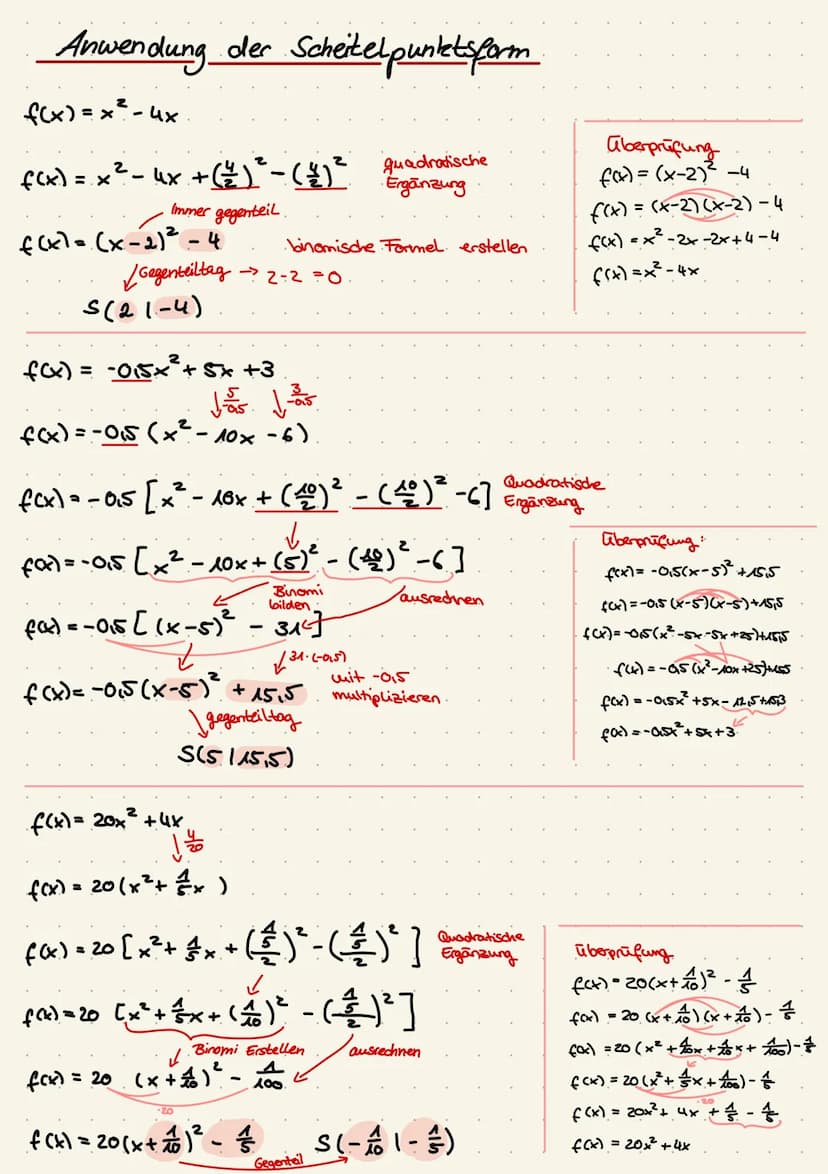 Anwendung der Scheitelpunktsform
f(x) = x² - 4x
f(x) = x² - 4x + (4/2)² - (4/2)² quadratische Ergänzung
Immer gegenteil
f(x) = (x-2)² - 4 binomische Formel erstellen
Gegenteiltag → 2-2 = 0
S(2 | -4)
Überprüfung
f(x) = (x-2)² - 4
f(x) = (x-2)(x-2) - 4
f(x) = x² - 2x - 2x + 4 - 4
f(x) = x² - 4x
f(x) = -0,5x² + 5x + 3
↓ 5/-0,5 ↓ 3/-0,5
f(x) = -0,5 (x² - 10x - 6)
f(x) = -0,5 [x² - 10x + (10/2)² - (10/2)² - 6] Quadratische Ergänzung
f(x) = -0,5 [x² - 10x + (5)² - (10/2)² - 6]
Binomi bilden ausrechnen
f(x) = -0,5 [(x-5)² - 31]
31·(-0,5)
f(x) = -0,5(x-5)² + 15,5 mit -0,5 multiplizieren
gegenteiltag
S(5 | 15,5)
Überprüfung:
f(x) = -0,5(x-5)² + 15,5
f(x) = -0,5 (x-5)(x-5) + 15,5
f(x) = -0,5(x² - 5x - 5x + 25) + 15,5
f(x) = -0,5(x² - 10x + 25) + 15,5
f(x) = -0,5x² + 5x - 12,5 + 15,5
f(x) = -0,5x² + 5x + 3
f(x) = 20x² + 4x
↓ 4/20
f(x) = 20(x² + 1/5x )
f(x) = 20 [x² + 1/5x + ((1/5)/2)² - ((1/5)/2)²] Quadratische Ergänzung
f(x) = 20 [x² + 1/5x + (1/10)² - ((1/5)/2)²]
Binomi Erstellen ausrechnen
f(x) = 20 (x + 1/10)² - 1/100
·20
f(x) = 20(x + 1/10)² - 1/5 S(-1/10 | -1/5)
Gegenteil
Überprüfung
f(x) = 20(x + 1/10)² - 1/5
f(x) = 20 (x + 1/10)(x + 1/10) - 1/5
f(x) = 20 (x² + 1/10x + 1/10x + 1/100) - 1/5
f(x) = 20(x² + 1/5x + 1/100) - 1/5
·20
f(x) = 20x² + 4x + 1/5 - 1/5
f(x) = 20x² + 4x